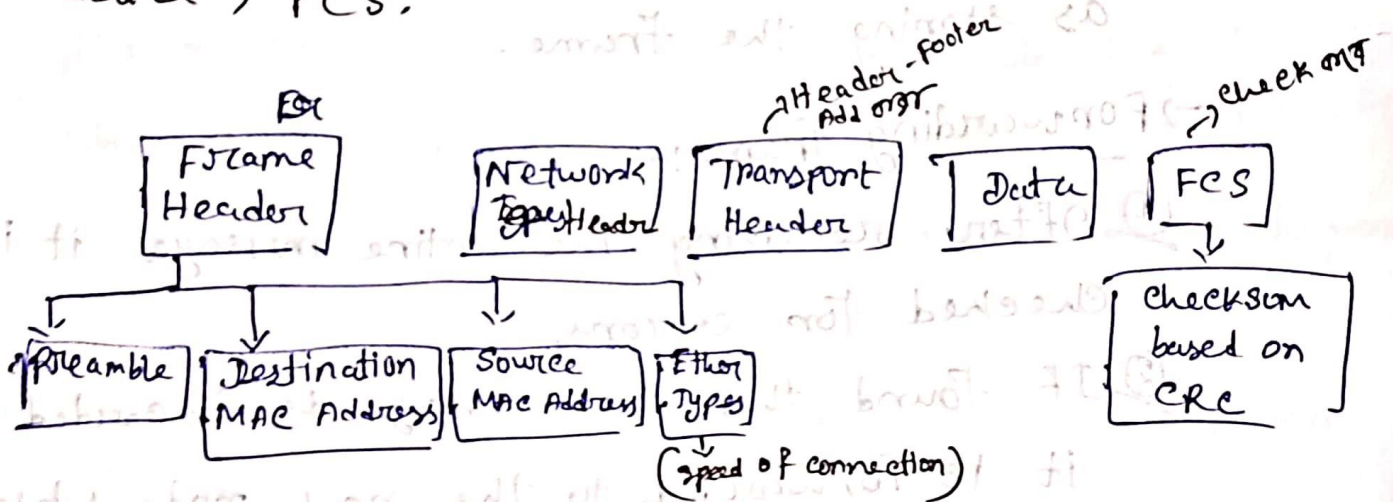 FCS.
Header-Footer
Add করে
Check করে
Frame
Header
Network
Header
Transport
Header
Data
FCS
Preamble
Destination
MAC Address
Source
MAC Address
Ether
Types
(speed of connection)
checksum
based on
CRC